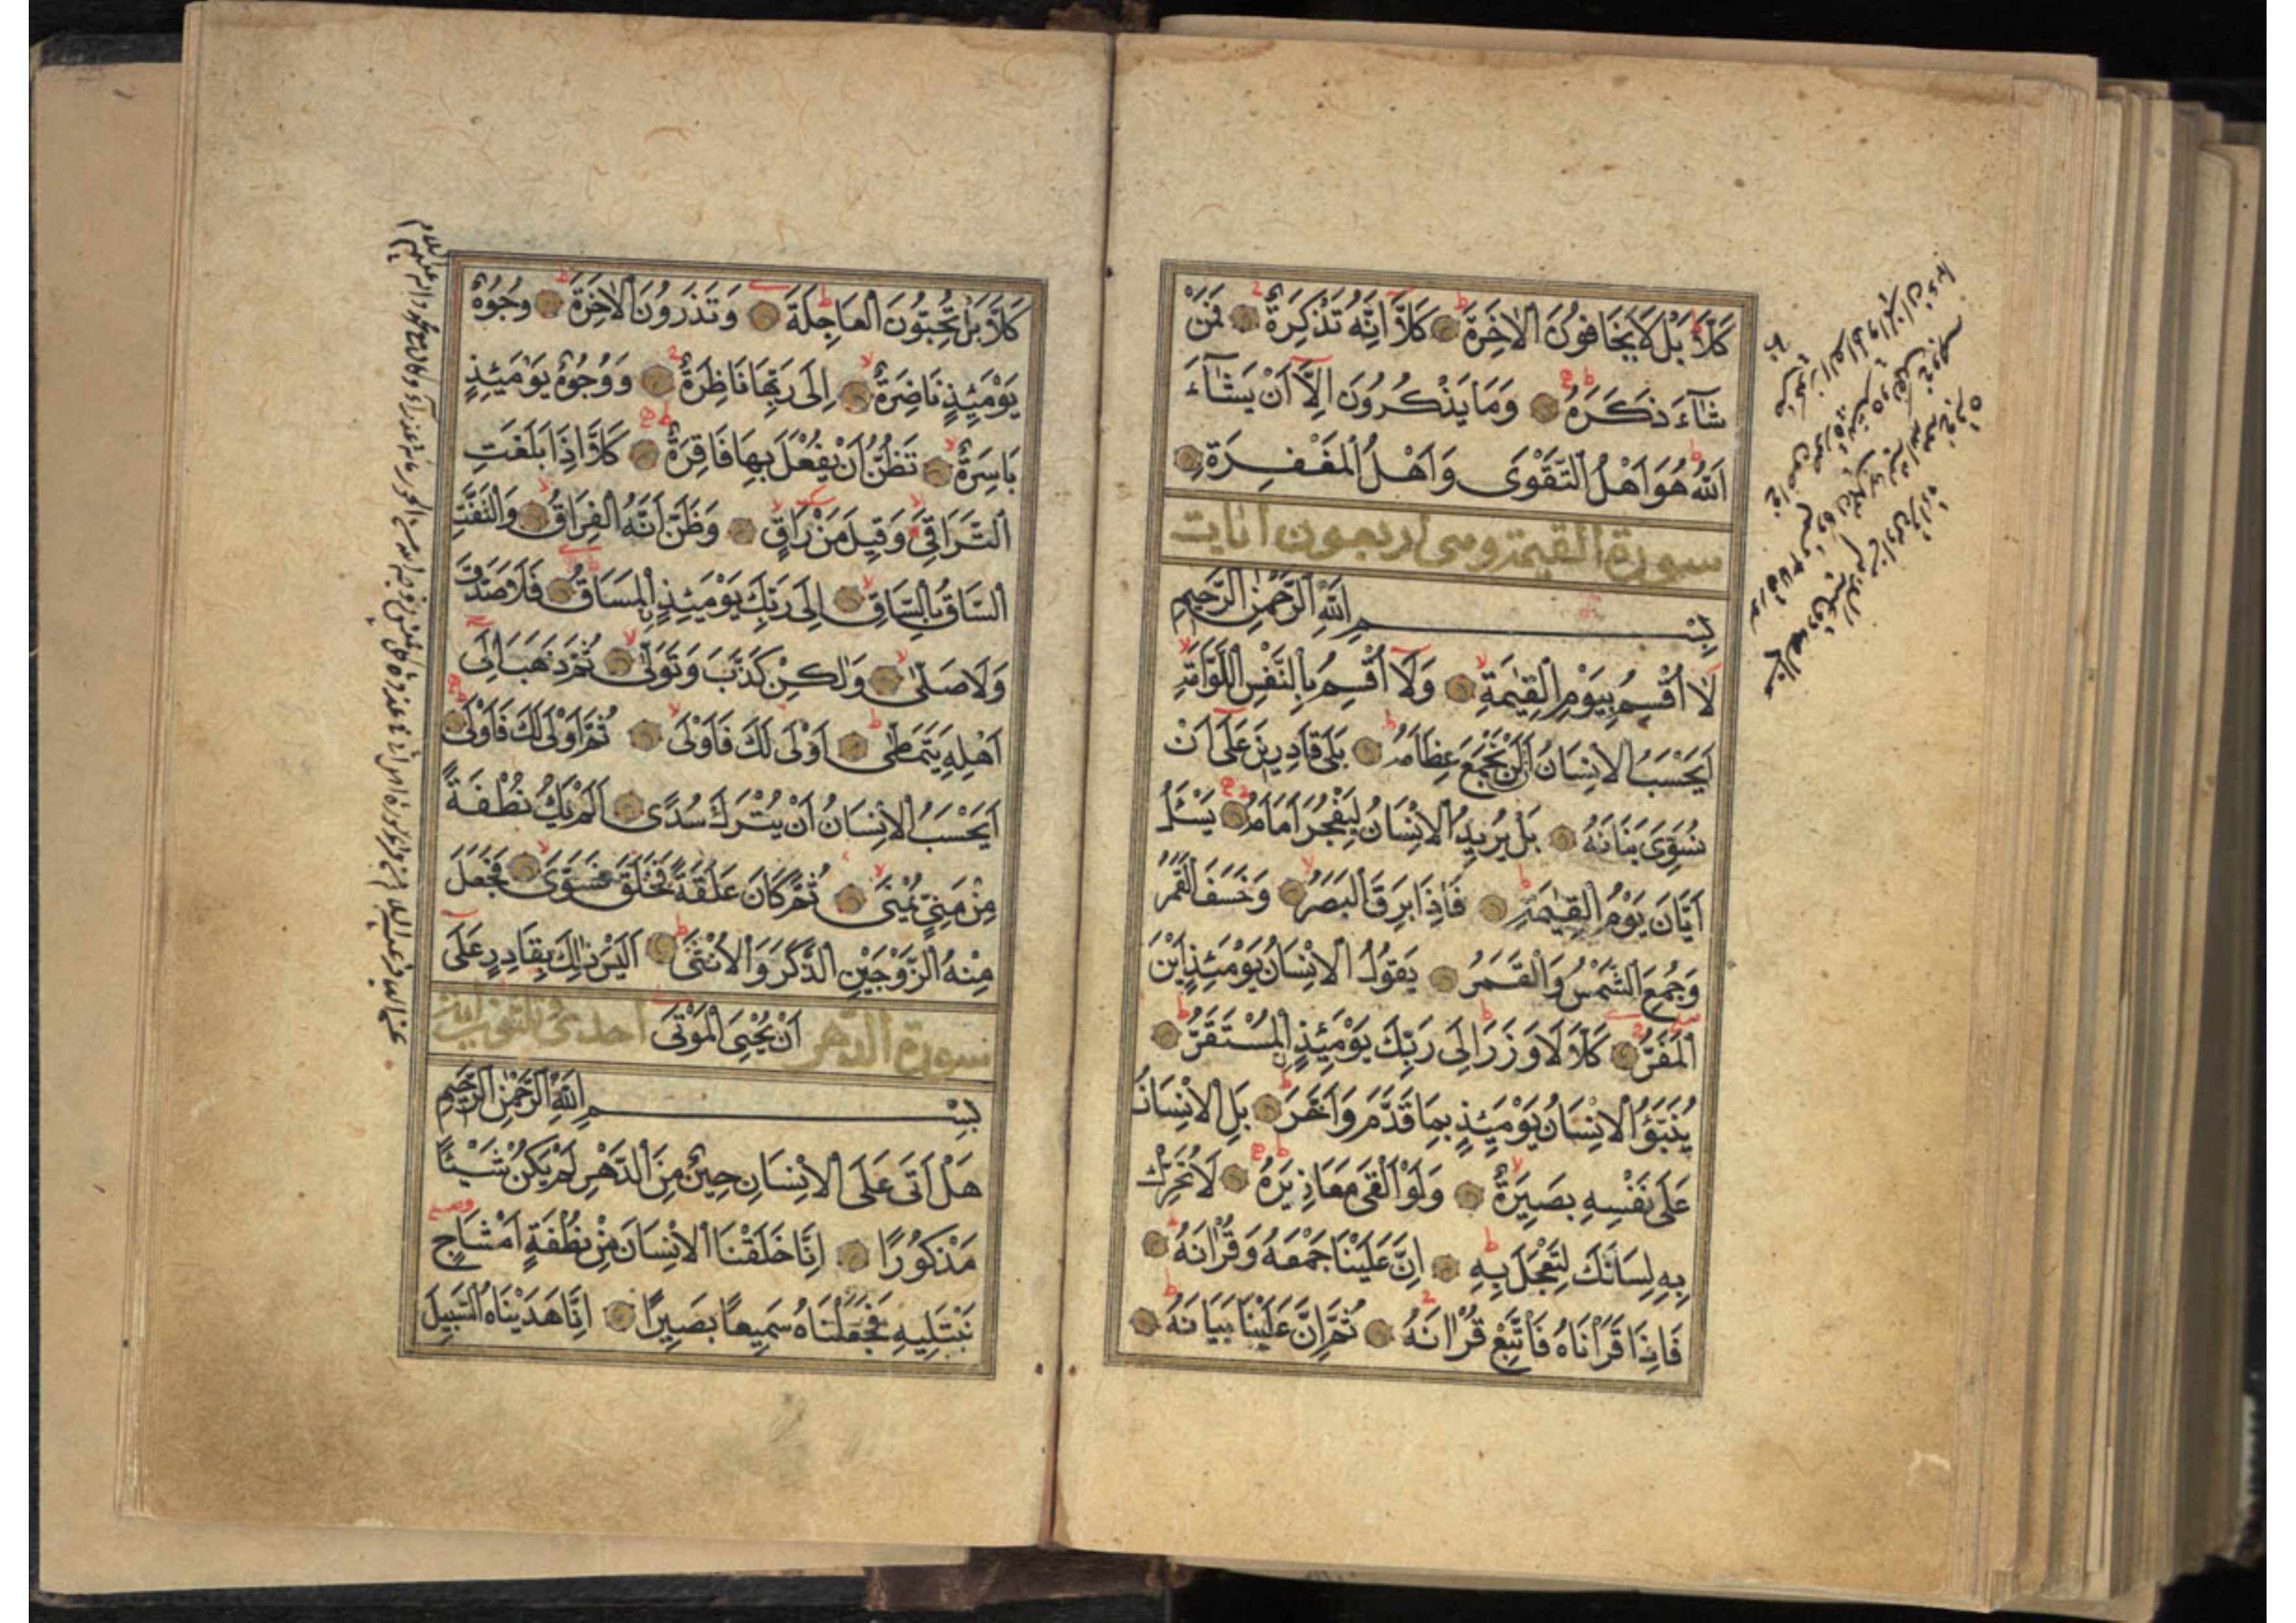 كَلَّا بَلْ لَا يَخَافُونَ الْاٰخِرَةَ كَلَّا اِنَّهُ تَذْكِرَةٌ فَمَنْ
شَآءَ ذَكَرَهُ وَمَا يَذْكُرُونَ اِلَّا اَنْ يَشَآءَ
اللّٰهُ هُوَ اَهْلُ التَّقْوٰى وَاَهْلُ الْمَغْفِرَةِ
سورة القيمة وهى اربعون اٰيات
بِسْمِ اللّٰهِ الرَّحْمٰنِ الرَّحِيمِ
لَا اُقْسِمُ بِيَوْمِ الْقِيٰمَةِ وَلَا اُقْسِمُ بِالنَّفْسِ اللَّوَّامَةِ
اَيَحْسَبُ الْاِنْسَانُ اَلَّنْ نَجْمَعَ عِظَامَهُ بَلٰى قَادِرِينَ عَلٰى اَنْ
نُسَوِّىَ بَنَانَهُ بَلْ يُرِيدُ الْاِنْسَانُ لِيَفْجُرَ اَمَامَهُ يَسْئَلُ
اَيَّانَ يَوْمُ الْقِيٰمَةِ فَاِذَا بَرِقَ الْبَصَرُ وَخَسَفَ الْقَمَرُ
وَجُمِعَ الشَّمْسُ وَالْقَمَرُ يَقُولُ الْاِنْسَانُ يَوْمَئِذٍ اَيْنَ
الْمَفَرُّ كَلَّا لَا وَزَرَ اِلٰى رَبِّكَ يَوْمَئِذٍ الْمُسْتَقَرُّ
يُنَبَّؤُا الْاِنْسَانُ يَوْمَئِذٍ بِمَا قَدَّمَ وَاَخَّرَ بَلِ الْاِنْسَانُ
عَلٰى نَفْسِهِ بَصِيرَةٌ وَلَوْ اَلْقٰى مَعَاذِيرَهُ لَا تُحَرِّكْ
بِهِ لِسَانَكَ لِتَعْجَلَ بِهِ اِنَّ عَلَيْنَا جَمْعَهُ وَقُرْاٰنَهُ
فَاِذَا قَرَاْنَاهُ فَاتَّبِعْ قُرْاٰنَهُ ثُمَّ اِنَّ عَلَيْنَا بَيَانَهُ
كَلَّا بَلْ تُحِبُّونَ الْعَاجِلَةَ وَتَذَرُونَ الْاٰخِرَةَ وُجُوهٌ
يَوْمَئِذٍ نَاضِرَةٌ اِلٰى رَبِّهَا نَاظِرَةٌ وَوُجُوهٌ يَوْمَئِذٍ
بَاسِرَةٌ تَظُنُّ اَنْ يُفْعَلَ بِهَا فَاقِرَةٌ كَلَّا اِذَا بَلَغَتِ
التَّرَاقِىَ وَقِيلَ مَنْ رَاقٍ وَظَنَّ اَنَّهُ الْفِرَاقُ وَالْتَفَّتِ
السَّاقُ بِالسَّاقِ اِلٰى رَبِّكَ يَوْمَئِذٍ الْمَسَاقُ فَلَا صَدَّقَ
وَلَا صَلّٰى وَلٰكِنْ كَذَّبَ وَتَوَلّٰى ثُمَّ ذَهَبَ اِلٰى
اَهْلِهِ يَتَمَطّٰى اَوْلٰى لَكَ فَاَوْلٰى ثُمَّ اَوْلٰى لَكَ فَاَوْلٰى
اَيَحْسَبُ الْاِنْسَانُ اَنْ يُتْرَكَ سُدًى اَلَمْ يَكُ نُطْفَةً
مِنْ مَنِىٍّ يُمْنٰى ثُمَّ كَانَ عَلَقَةً فَخَلَقَ فَسَوّٰى فَجَعَلَ
مِنْهُ الزَّوْجَيْنِ الذَّكَرَ وَالْاُنْثٰى اَلَيْسَ ذٰلِكَ بِقَادِرٍ عَلٰى
اَنْ يُحْيِىَ الْمَوْتٰى
سورة الدهر احدى
بِسْمِ اللّٰهِ الرَّحْمٰنِ الرَّحِيمِ
هَلْ اَتٰى عَلَى الْاِنْسَانِ حِينٌ مِنَ الدَّهْرِ لَمْ يَكُنْ شَيْئًا
مَذْكُورًا اِنَّا خَلَقْنَا الْاِنْسَانَ مِنْ نُطْفَةٍ اَمْشَاجٍ
نَبْتَلِيهِ فَجَعَلْنَاهُ سَمِيعًا بَصِيرًا اِنَّا هَدَيْنَاهُ السَّبِيلَ